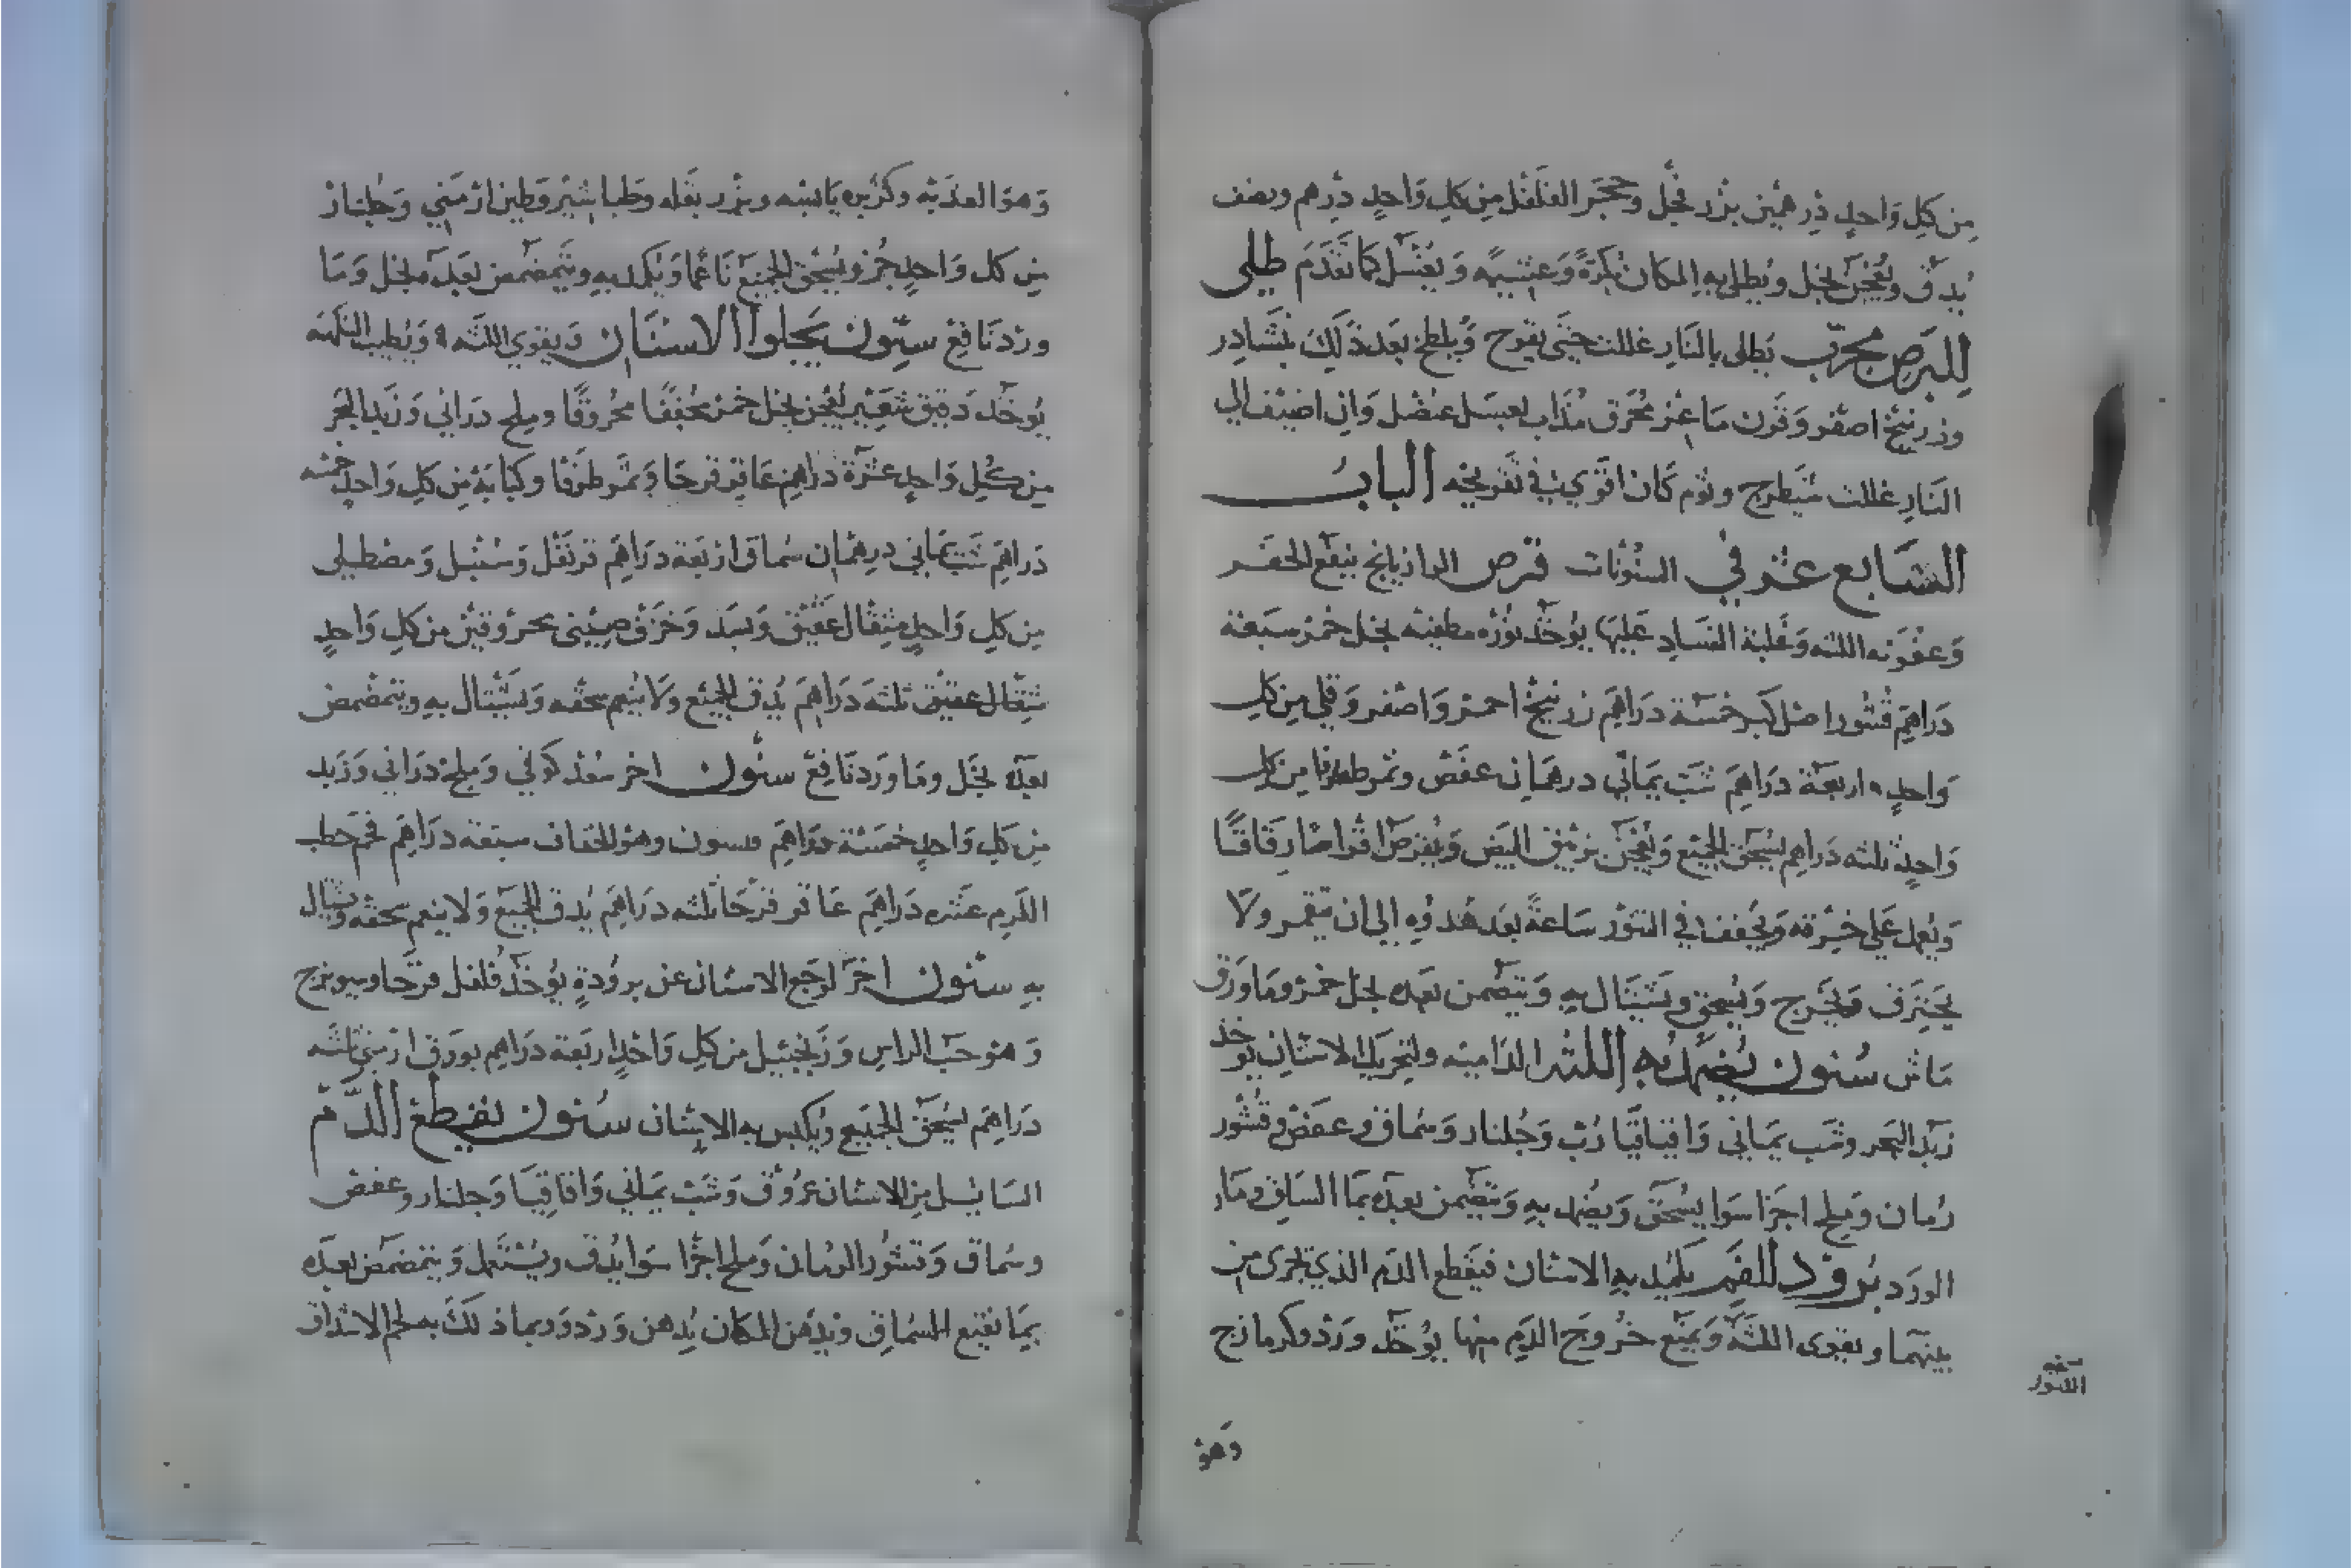 من كل واحد درهمين بزر فجل وحجر الفلفل من كل واحد درهم ونصف
يدق ويعجن بخل ويطلى به المكان بكرة وعشيه ويغسل كما تقدم طلى
للبرص مجرب يطلى بالنار غللت حتى يقرح ويلطخ بعد ذلك بنشادر
وزرنيخ اصفر وقرن ماعز محرق مذاب بعسل عنصل وان اضيف الي
النار غللت شيطرج وثوم كان اقوي في تقريحه الباب
السابع عشر في السنونات قرص الرازيانج ينفع الحفر
وعفونه اللثه وغلبة الفساد عليها يوخذ نوره مطفيه بخل خمر سبعة
دراهم قشور اصل كبر خمسة دراهم زرنيخ احمر واصفر وقلي من كل
واحد اربعة دراهم شب يماني درهمان عفص وثمر طرفا من كل
واحد ثلثه دراهم يسحق الجميع ويعجن برقيق البيض ويقرص اقراصا رقاقا
ويعمل على خزفه ويجفف في التنور ساعة بعد هدوه الي ان تقمر ولا
يحترق ويخرج ويسحق ويستال به ويتمضمض بعده بخل خمر وماورق
ماش سنون يضمد به اللثه الداميه ولتحريك الاسنان يوخذ
زبد البحر وشب يماني واقاقيا رب وجلنار وسماق وعفص وقشور
رمان وملح اجزا سوا يسحق ويضمد به ويتمضمض بعده بما السماق وما
الورد برود للفم يكمد به الاسنان فيقطع الدم الذي يجرى من
بينهما ويقوى اللثة ويمنع خروج الدم منها يوخذ ورد وكرمازج
وهو
وهو العذبه وكزبره يابسه وبزر بقله وطباشير وطين ارمني وجلنار
من كل واحد جز ويسحق الجميع ناعما ويكمد به ويتمضمض بعده بخل وما
ورد نافع سنون يجلوا الاسنان ويقوي اللثه ويطيب النكهه
يوخذ دقيق شعير يعجن بخل خمر مجففا محروقا وملح دراني وزبد البحر
من كل واحد عشرة دراهم عاقر قرحا وثمر طرفا وكبابة من كل واحد خمسه
دراهم شب يماني درهمان سماق اربعة دراهم قرنفل وسنبل ومصطكى
من كل واحد مثقال عقيق وبسد وخزف صيني محروقين من كل واحد
مثقال عقيق ثلثه دراهم يدق الجميع ولا ينعم سحقه ويستال به ويتمضمض
بعده بخل وما ورد نافع سنون اخر سعد كوفي وملح دراني وزبد
من كل واحد خمسة دراهم وهو الخفاف سبعة دراهم فحم حطب
الكرم عشره دراهم عاقر قرحا ثلثه دراهم يدق الجميع ولا ينعم سحقه ويستال
به سنون اخر لوجع الاسنان عن برودة يوخذ فلفل قرحا وميويزج
وهو حب الراس وزنجبيل من كل واحد اربعة دراهم بورق ارمني ثلثه
دراهم يسحق الجميع ويكبس به الاسنان سنون لقطع الدم
السايل من الاسنان عروق وشب يماني واقاقيا وجلنار وعفص
وسماق وقشور الرمان وملح اجزا سوا يدق ويستعمل ويتمضمض بعده
بما نقيع السماق ويدهن المكان بدهن ورد وربما ذلك به لحم الاشداق